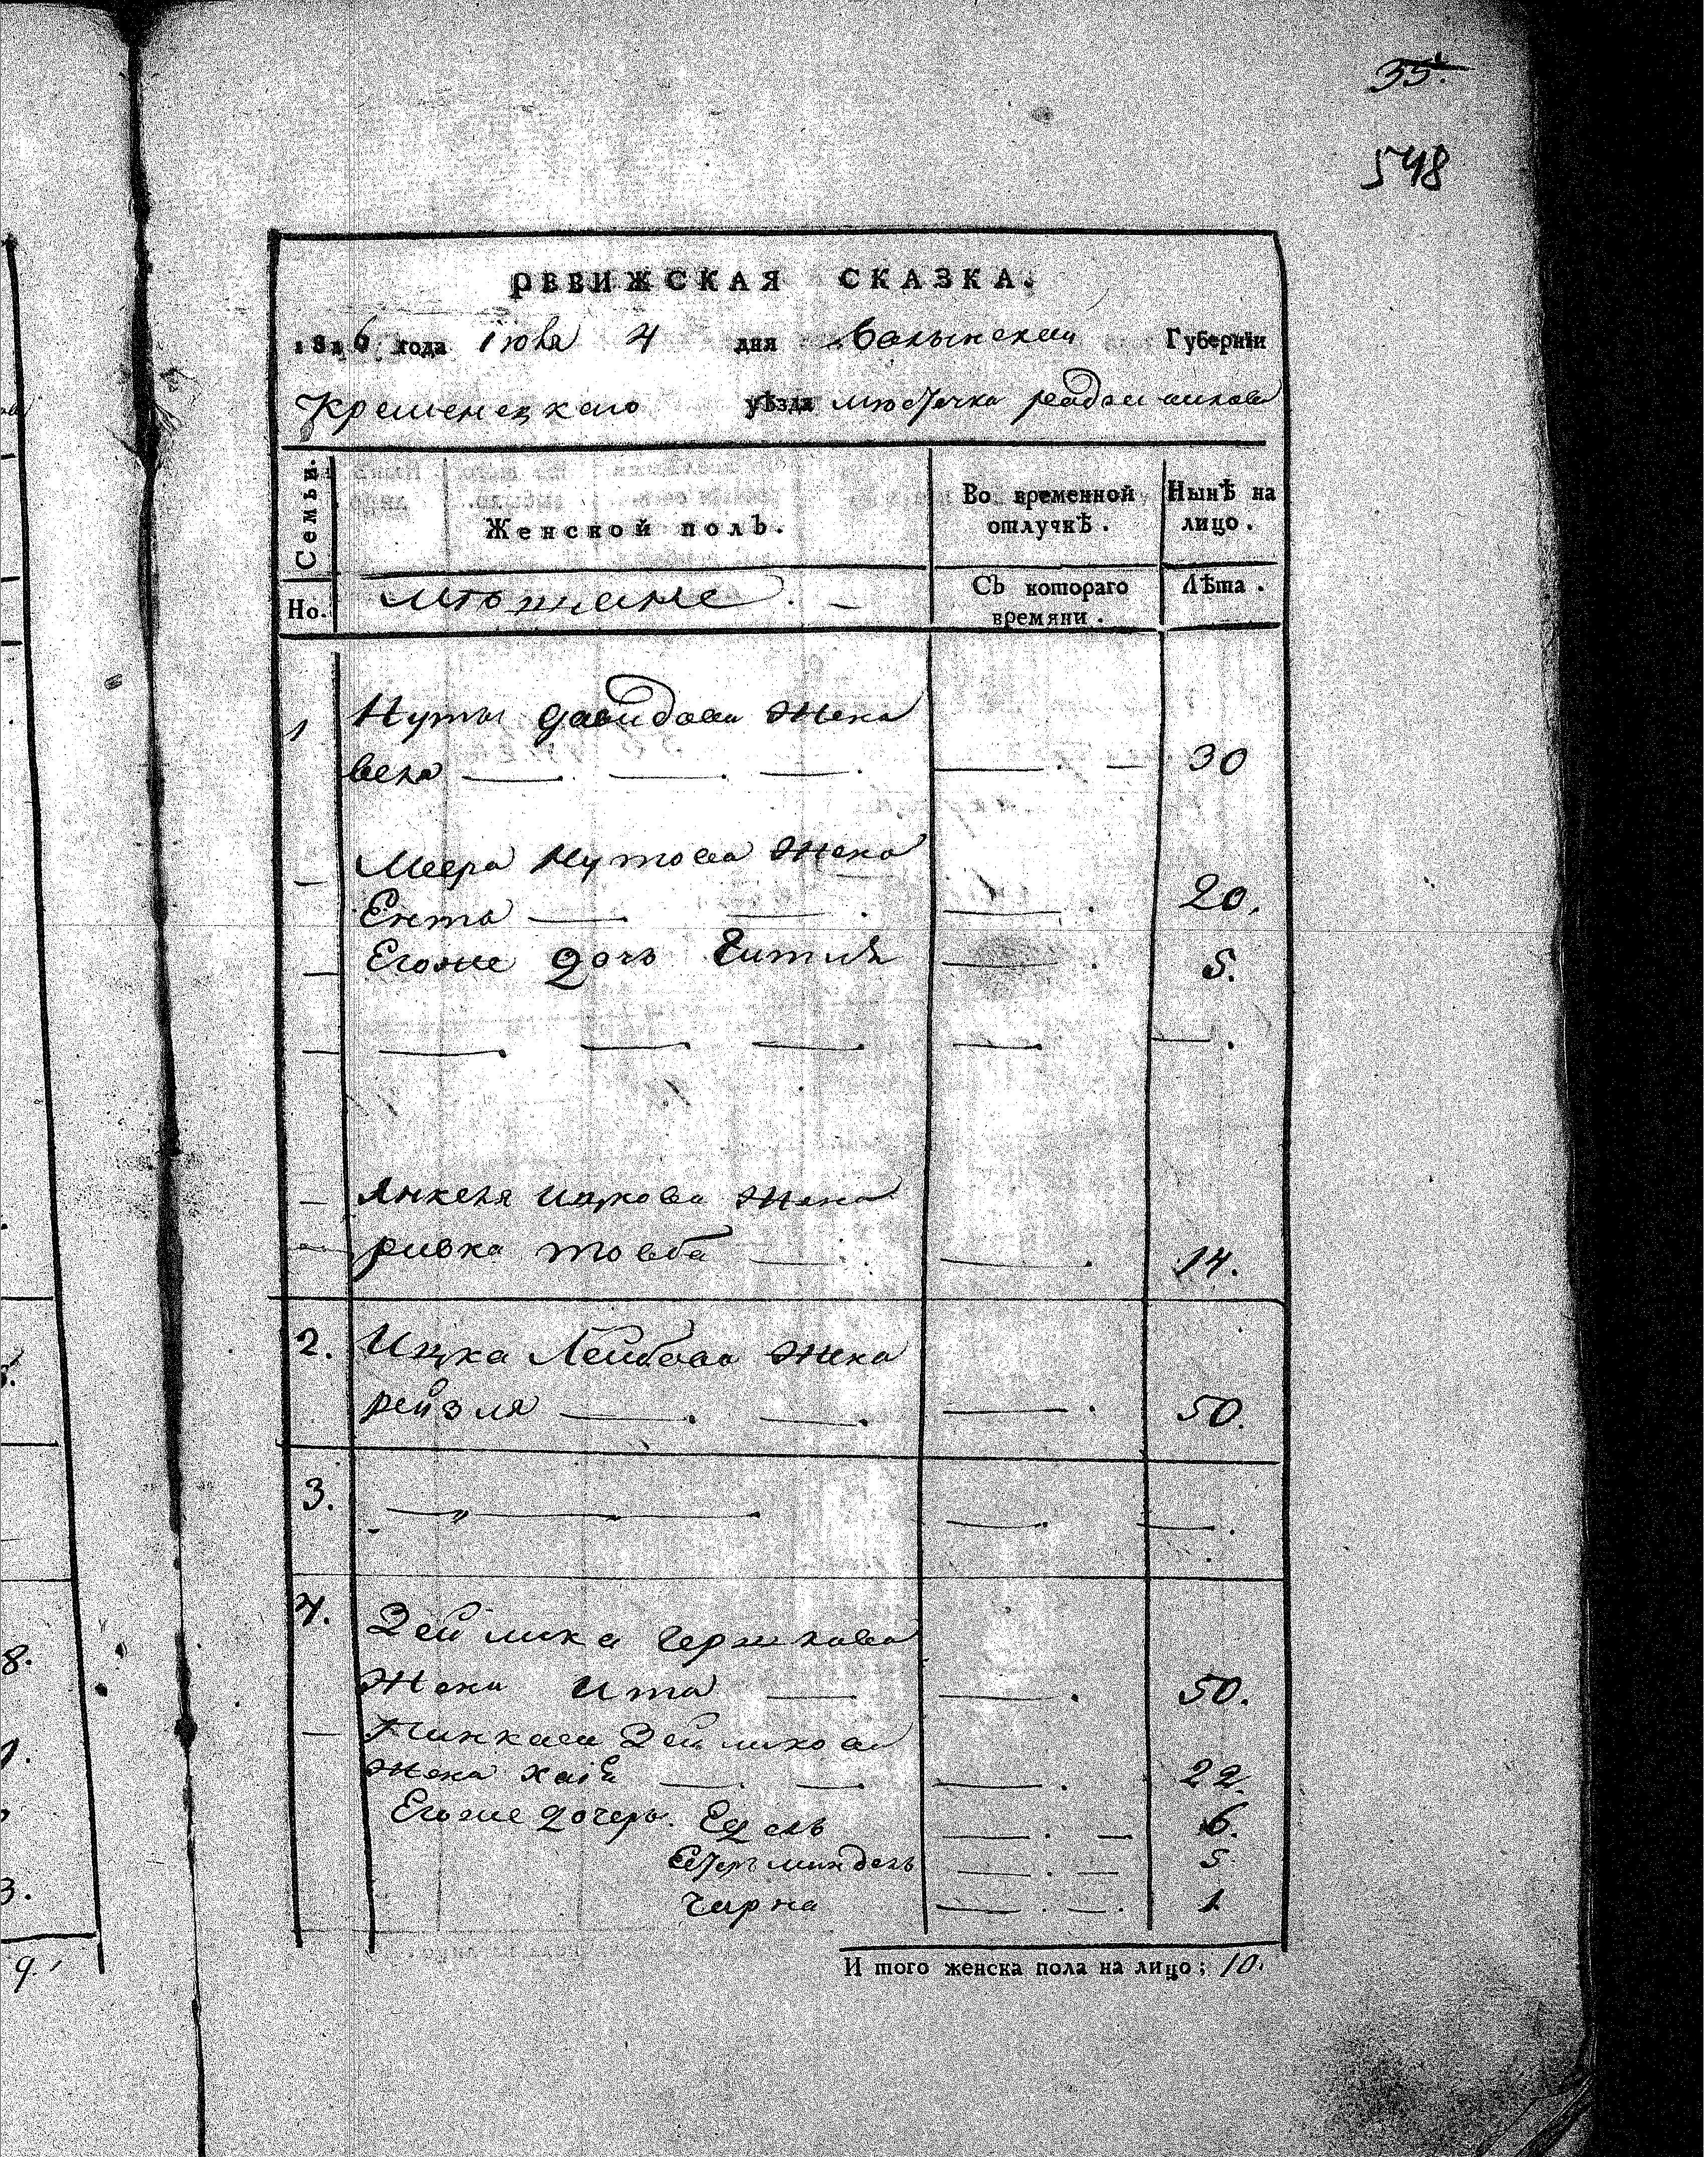 35.
548
РЕВИЖСКАЯ СКАЗКА.
1816 года Іюня 4 дня Волынской Губерніи
Кременецкаго уѣзда мѣстечка радзивилова
Семьи.
Женской полъ.
Во временной
отлучкѣ.
Нынѣ на
лицо.
Но.
мѣщане. —
Съ котораго
времяни.
Лѣта.
1 Нуты давидова жена
вела — — — — — 30
— Меера Нутова жена
Ента — — — 20.
— Егоже дочь Гитля — 5.
— — — — — —
— Янкеля ицкова жена
ривка товба — — 14.
2. Ицка Лейбова жена
рейзля — — — 50.
3. — — — —
4. Зейлика гершкова
жена ита — — 50.
— Пинкаса Зейликова
жена хаія — — — 22.
Егоже дочерь. Едель — — 6.
Естеръ миндель — — 5
чарна — — 1
И того женска пола на лицо; 10.